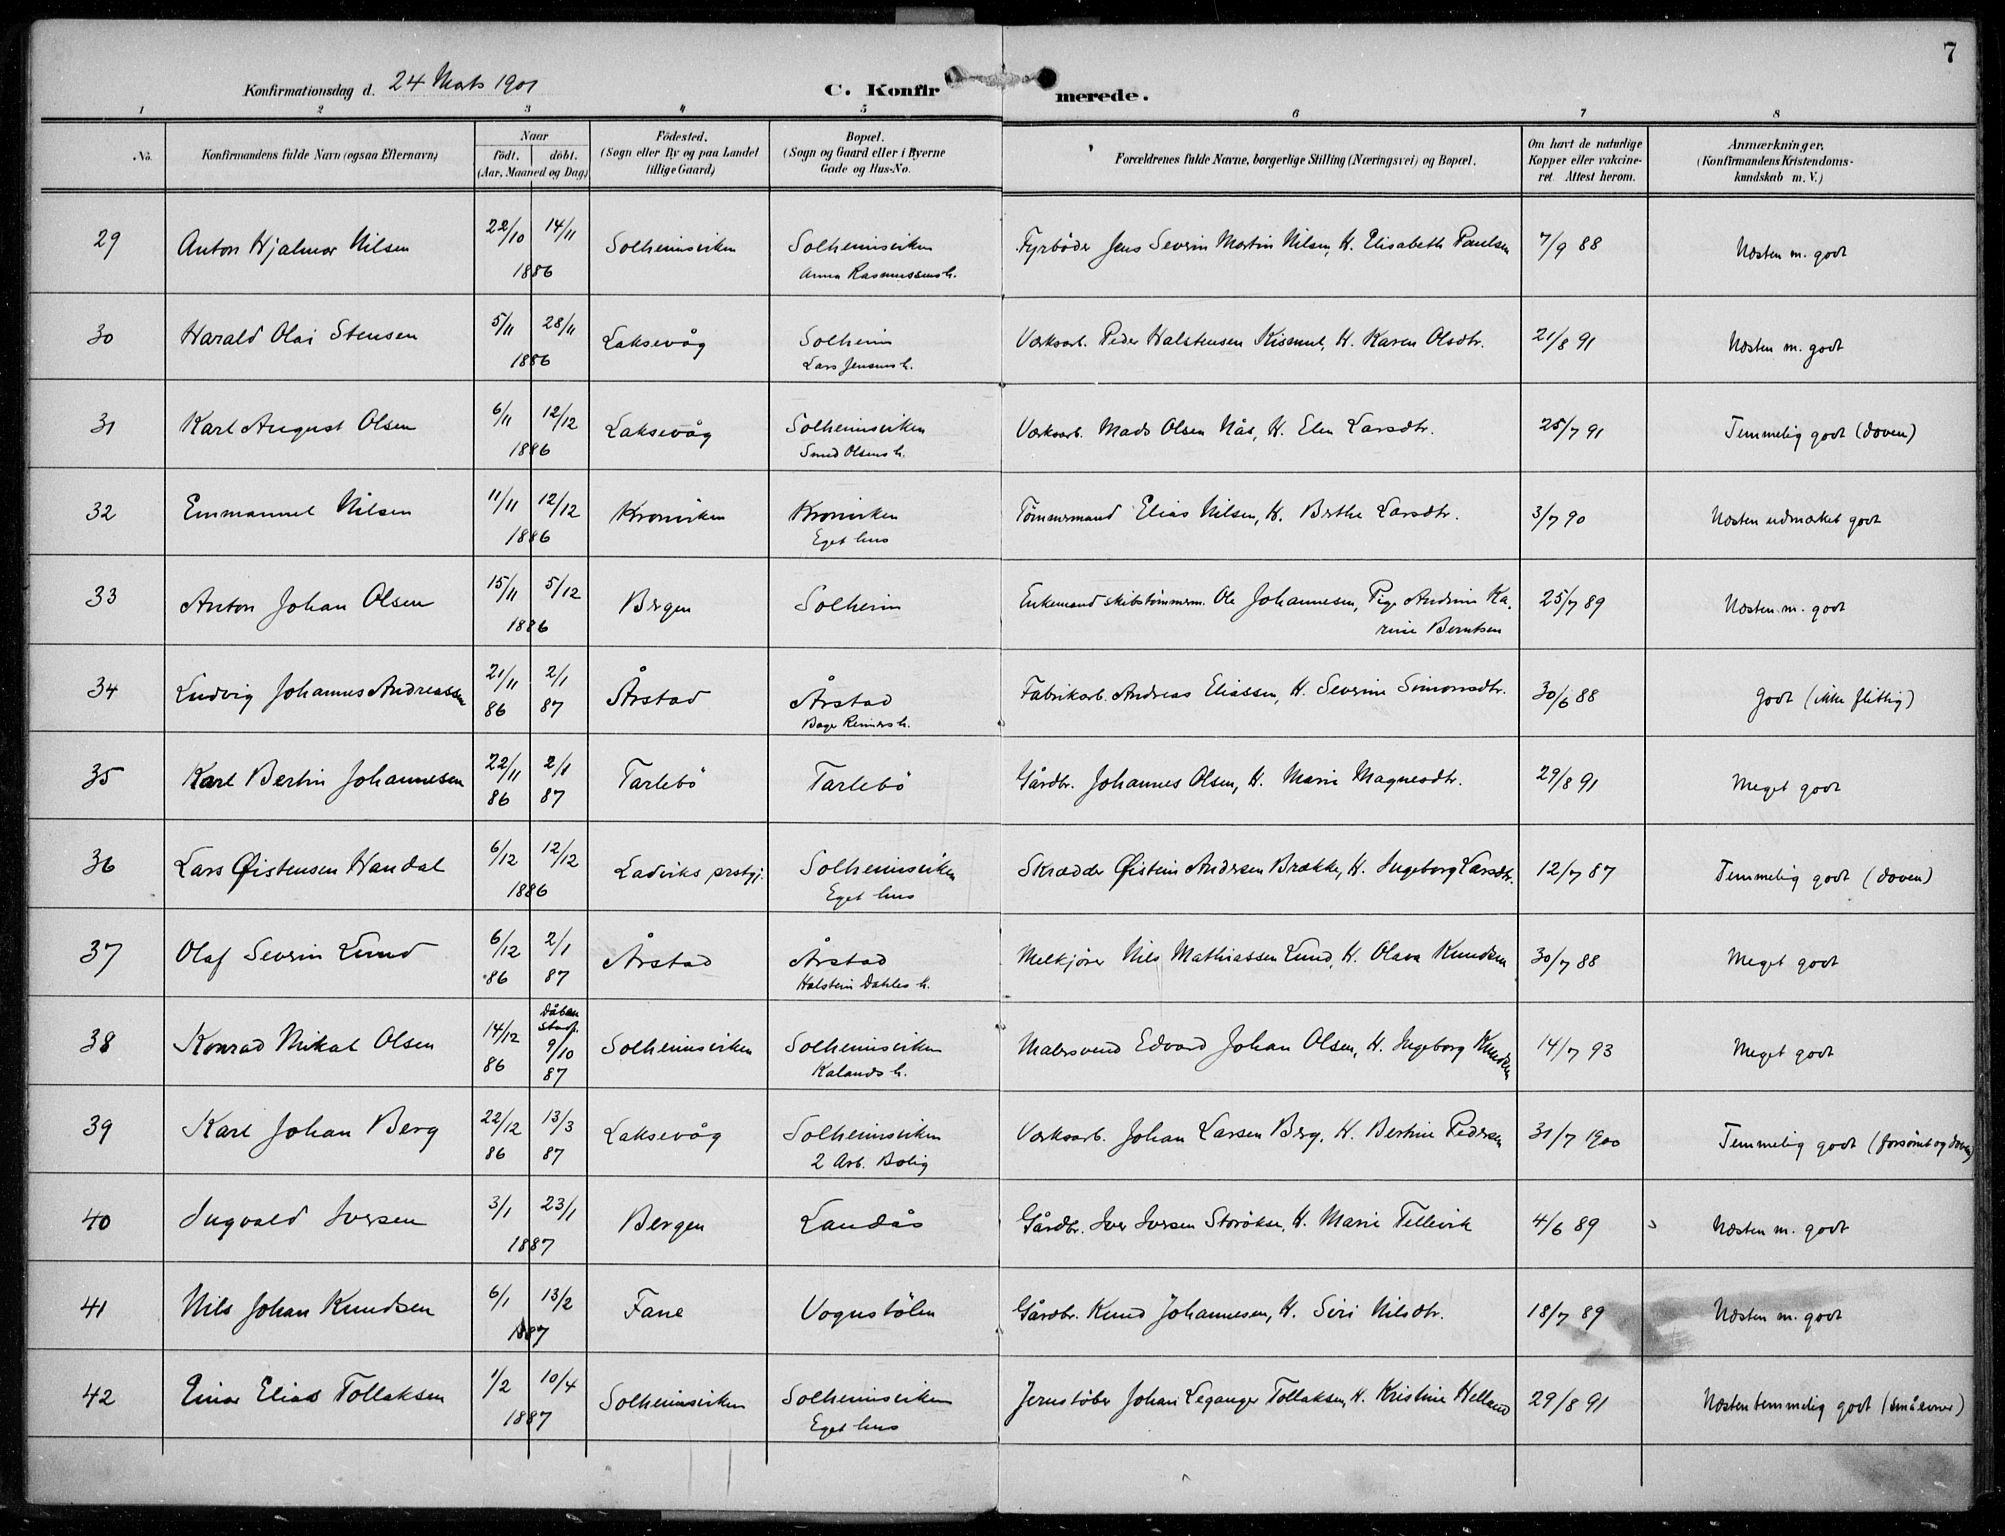 7
Konfirmationsdag d. 24 Marts 1901
C. Konfirmerede.
1 2 3 4 5 6 7 8
No. | Konfirmandens fulde Navn (ogsaa Efternavn) | Naar født. døbt. (Aar, Maaned og Dag) | Fødested. (Sogn eller By og paa Landet tillige Gaard) | Bopæl. (Sogn og Gaard eller i Byerne Gade og Hus-No. | Forældrenes fulde Navne, borgerlige Stilling (Næringsvei) og Bopæl. | Om havt de naturlige Kopper eller vakcineret Attest herom. | Anmærkninger. (Konfirmandens Kristendomskundskab m. V.)
29 | Anton Hjalmar Nilsen | 22/10 14/11 1886 | Solheimsviken | Solheimsviken Anna Rasmussens h. | Fyrbøder Jens Severin Martin Nilsen, H. Elisabeth Paulsen | 7/9 88 | Næsten m. godt
30 | Harald Olai Stensen | 5/11 28/11 1886 | Laksevåg | Solheim Lars Jensens h. | Værksarb. Peder Halstensen Kismul, H. Karen Olsdtr. | 21/8 91 | Næsten m. godt
31 | Karl August Olsen | 6/11 12/12 1886 | Laksevåg | Solheimsviken Smed Olsens h. | Værksarb. Mads Olsen Nås, H. Elen Larsdtr. | 25/7 91 | Temmelig godt (doven)
32 | Emmanuel Nilsen | 11/11 12/12 1886 | Kronviken | Kronviken Eget hus | Tømmermand Elias Nilsen, H. Berthe Larsdtr. | 3/7 90 | Næsten udmærket godt
33 | Anton Johan Olsen | 15/11 5/12 1886 | Bergen | Solheim | Enkemand skibstømmerm. Ole Johannesen, Pige Andrine Karine Berntsen | 25/7 89 | Næsten m. godt
34 | Ludvig Johannes Andreassen | 21/11 86 2/1 87 | Årstad | Årstad Bage Reimers h. | Fabrikarb. Andreas Eliassen, H. Severine Simonsdtr. | 30/6 88 | godt (ikke flittig)
35 | Karl Bertin Johannesen | 22/11 86 2/1 87 | Tarlebö | Tarlebö | Gårdbr. Johannes Olsen, H. Marie Magnesdtr. | 29/8 91 | Meget godt
36 | Lars Øistensen Handal | 6/12 12/12 1886 | Ladviks prstgj. | Solheimsviken Eget hus | Skrædder Øistein Andersen Brække, H. Ingeborg Larsdtr. | 12/7 87 | Temmelig godt (doven)
37 | Olaf Severin Lund | 6/12 86 2/1 87 | Årstad | Årstad Halstein Dahles h. | Melkjører Nils Mathiassen Lund, H. Olava Knudsen | 30/7 88 | Meget godt
38 | Konrad Mikal Olsen | 14/12 86 Dåben stadf. 9/10 87 | Solheimsviken | Solheimsviken Kalands h. | Malersvend Edvard Johan Olsen, H. Ingeborg Knudsen | 14/7 93 | Meget godt
39 | Karl Johan Berg | 22/12 86 13/3 87 | Laksevåg | Solheimsviken 2 Arb. Bolig | Værksarb. Johan Larsen Berg, H. Bertine Pedersen | 31/7 1900 | Temmelig godt (forsømt og doven)
40 | Ingvald Iversen | 3/1 23/1 1887 | Bergen | Landås | Gårdbr. Iver Iversen Storøksen, H. Marie Tellevik | 4/6 89 | Næsten m. godt
41 | Nils Johan Knudsen | 6/1 13/2 1887 | Fane | Vognstølen | Gårdbr. Knud Johannesen, H. Siri Nilsdtr. | 18/7 89 | Næsten m. godt
42 | Einar Elias Tollaksen | 1/2 10/4 1887 | Solheimsviken | Solheimsviken Eget hus | Jernstøber Johan Leganger Tollaksen, H. Kristine Helland | 29/8 91 | Næsten temmelig godt (små evner)